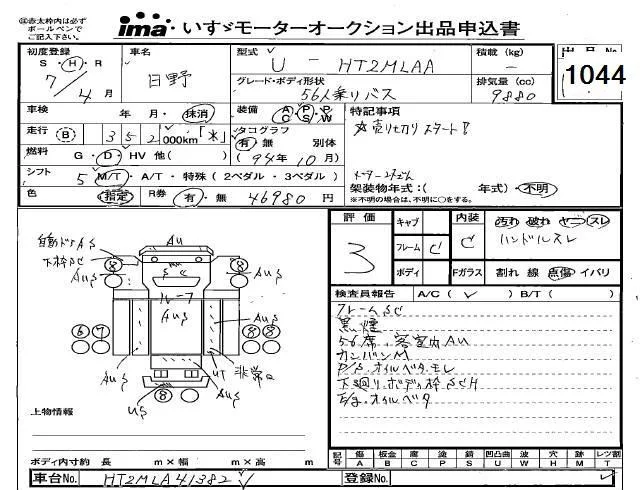 ㊟赤太枠内は必ず
ボールペンで
ご記入下さい。
ima いすゞモーターオークション出品申込書
初度登録
S・H・R
7/4月
車名
日野
型式
U-HT2MLAA
積載(kg)
-
出品No
1044
グレード・ボディ形状
56人乗りバス
排気量(cc)
9880
車検
年 月・抹消
装備
A P P
C S W
特記事項
売り切りスタート!!
走行
8 3 5 2 000km「*」
タコグラフ
有・無 別体
(94年10月)
燃料
G・D・HV 他( )
シフト
5 M/T・A/T・特殊(2ペダル・3ペダル)
架装物年式:( 年式)・不明
※不明の場合は、不明に○をする。
色
指定
R券
有・無 46980円
評価
3
キャブ
フレーム C
ボディ
内装 C
Fガラス
汚れ 破れ ヤニ スレ
ハンドルスレ
割れ 線 点傷 イバリ
自動ドアAS
下枠SC
AU
8
8
AUS
SC
AUS
ルーフ
AUS
AUS
6 7
8 8
AUS
AUS
UT
非常口
US
8
検査員報告 A/C(✓) B/T( )
フレームSC
黒煙
56席.客室内AU
カンバンM
P/S.オイルベタ.モレ
下廻り.ボディ枠SCH
E/g.オイルベタ
上物情報
ボディ内寸約 長 m×幅 m×高 m
記号 傷 板金 腐 塗 錆 凹凸曲 波 穴 跡 レンズ割
A B C P S U W H M T
車台No. HT2MLA41382
登録No.